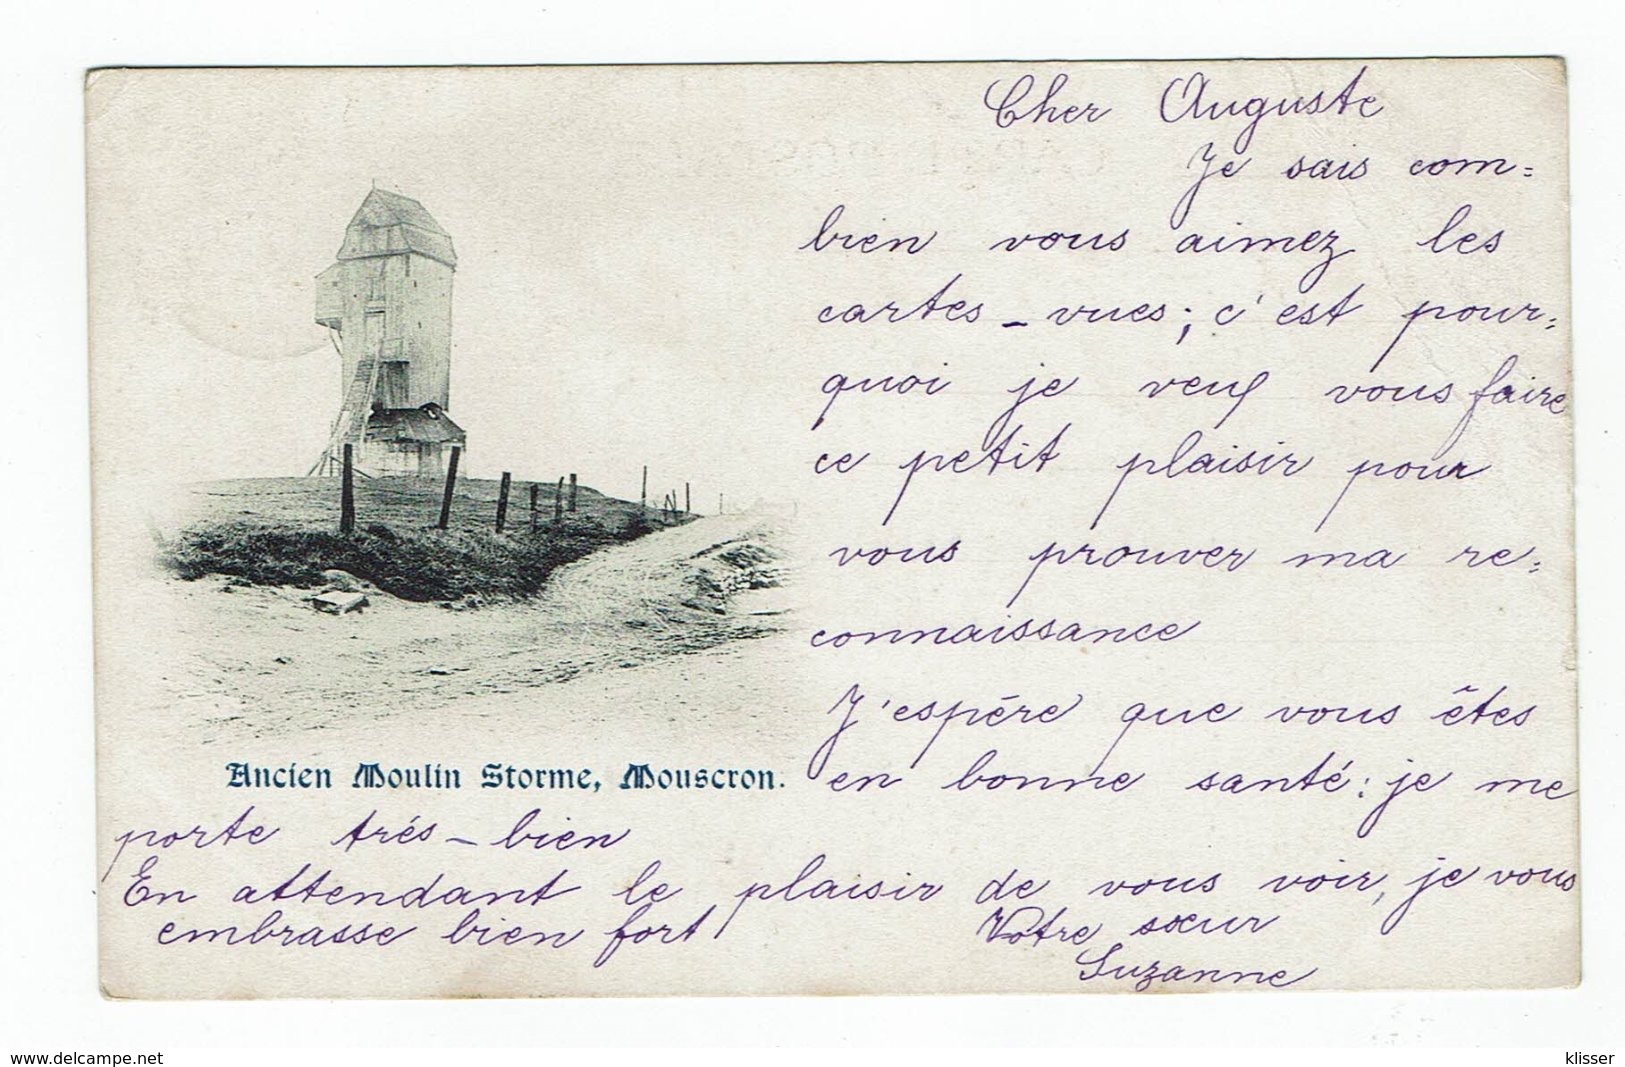 Cher Auguste
Je sais com=
bien vous aimez les
cartes-vues; c'est pour=
quoi je veux vous faire
ce petit plaisir pour
vous prouver ma re=
connaissance
J'espére que vous êtes
en bonne santé: je me
Ancien Moulin Storme, Mouscron.
porte trés-bien
En attendant le plaisir de vous voir, je vous
embrasse bien fort
Votre sœur
Suzanne
www.delcampe.net
klisser